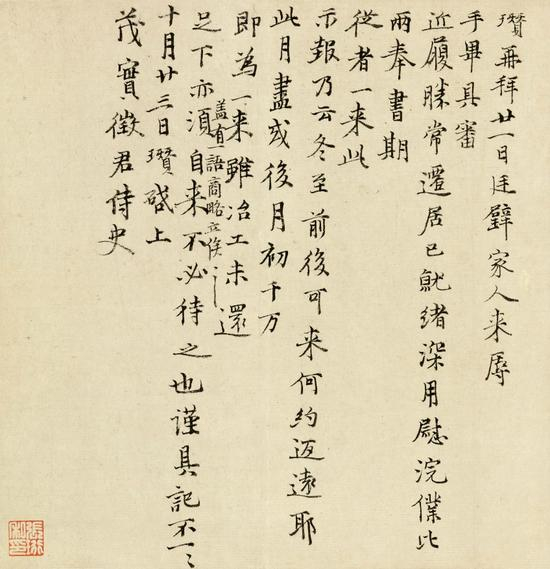 瓒再拜廿一日廷璧家人来辱
手畢具審
近履勝常遷居已就緒深用慰浣僕比
兩奉書期
從者一来此
示報乃云冬至前後可来何約迺遠耶
此月盡或後月初千万
即為一来雖冶工未還
盖有一語商略立俟之
足下亦須自来不必待之也謹具記不一〻
十月廿三日瓒啓上
茂實徵君侍史